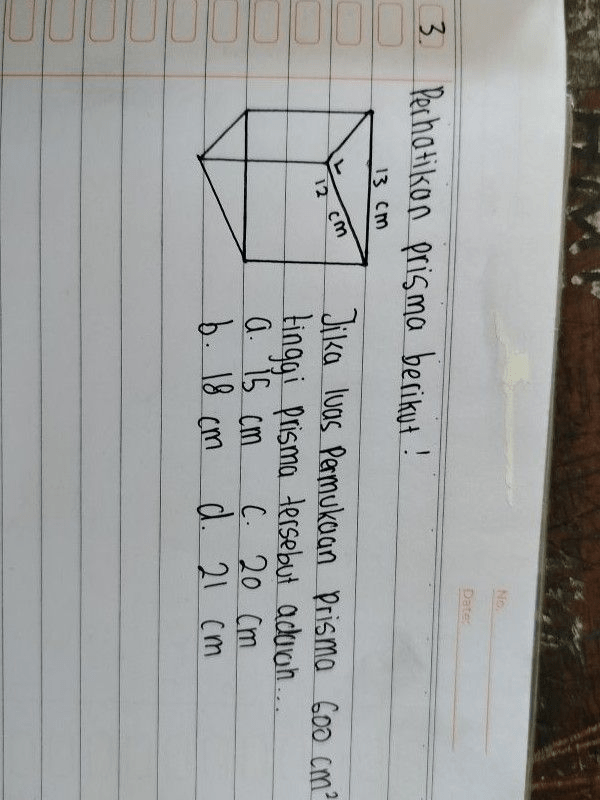 No.
Date:
3. Perhatikan prisma berikut!
13 cm
12 cm
Jika luas Permukaan prisma 600 cm²
tinggi prisma tersebut adalah...
a. 15 cm c. 20 cm
b. 18 cm d. 21 cm